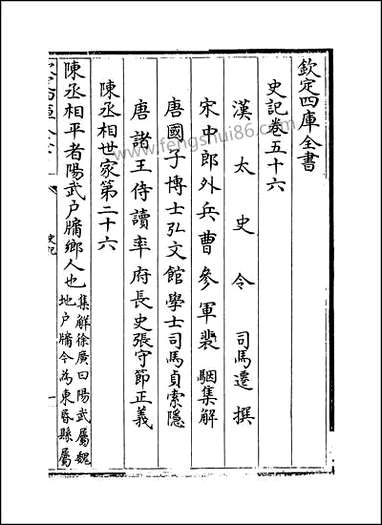 欽定四庫全書
史記卷五十六
漢太史令司馬遷撰
宋中郎外兵曹參軍裴駰集解
唐國子博士弘文館學士司馬貞索隱
唐諸王侍讀率府長史張守節正義
陳丞相世家第二十六
陳丞相平者陽武戶牖鄉人也
集解徐廣曰陽武屬魏
地戶牖今為東昏縣屬
史記
一
www.fengshui86.com